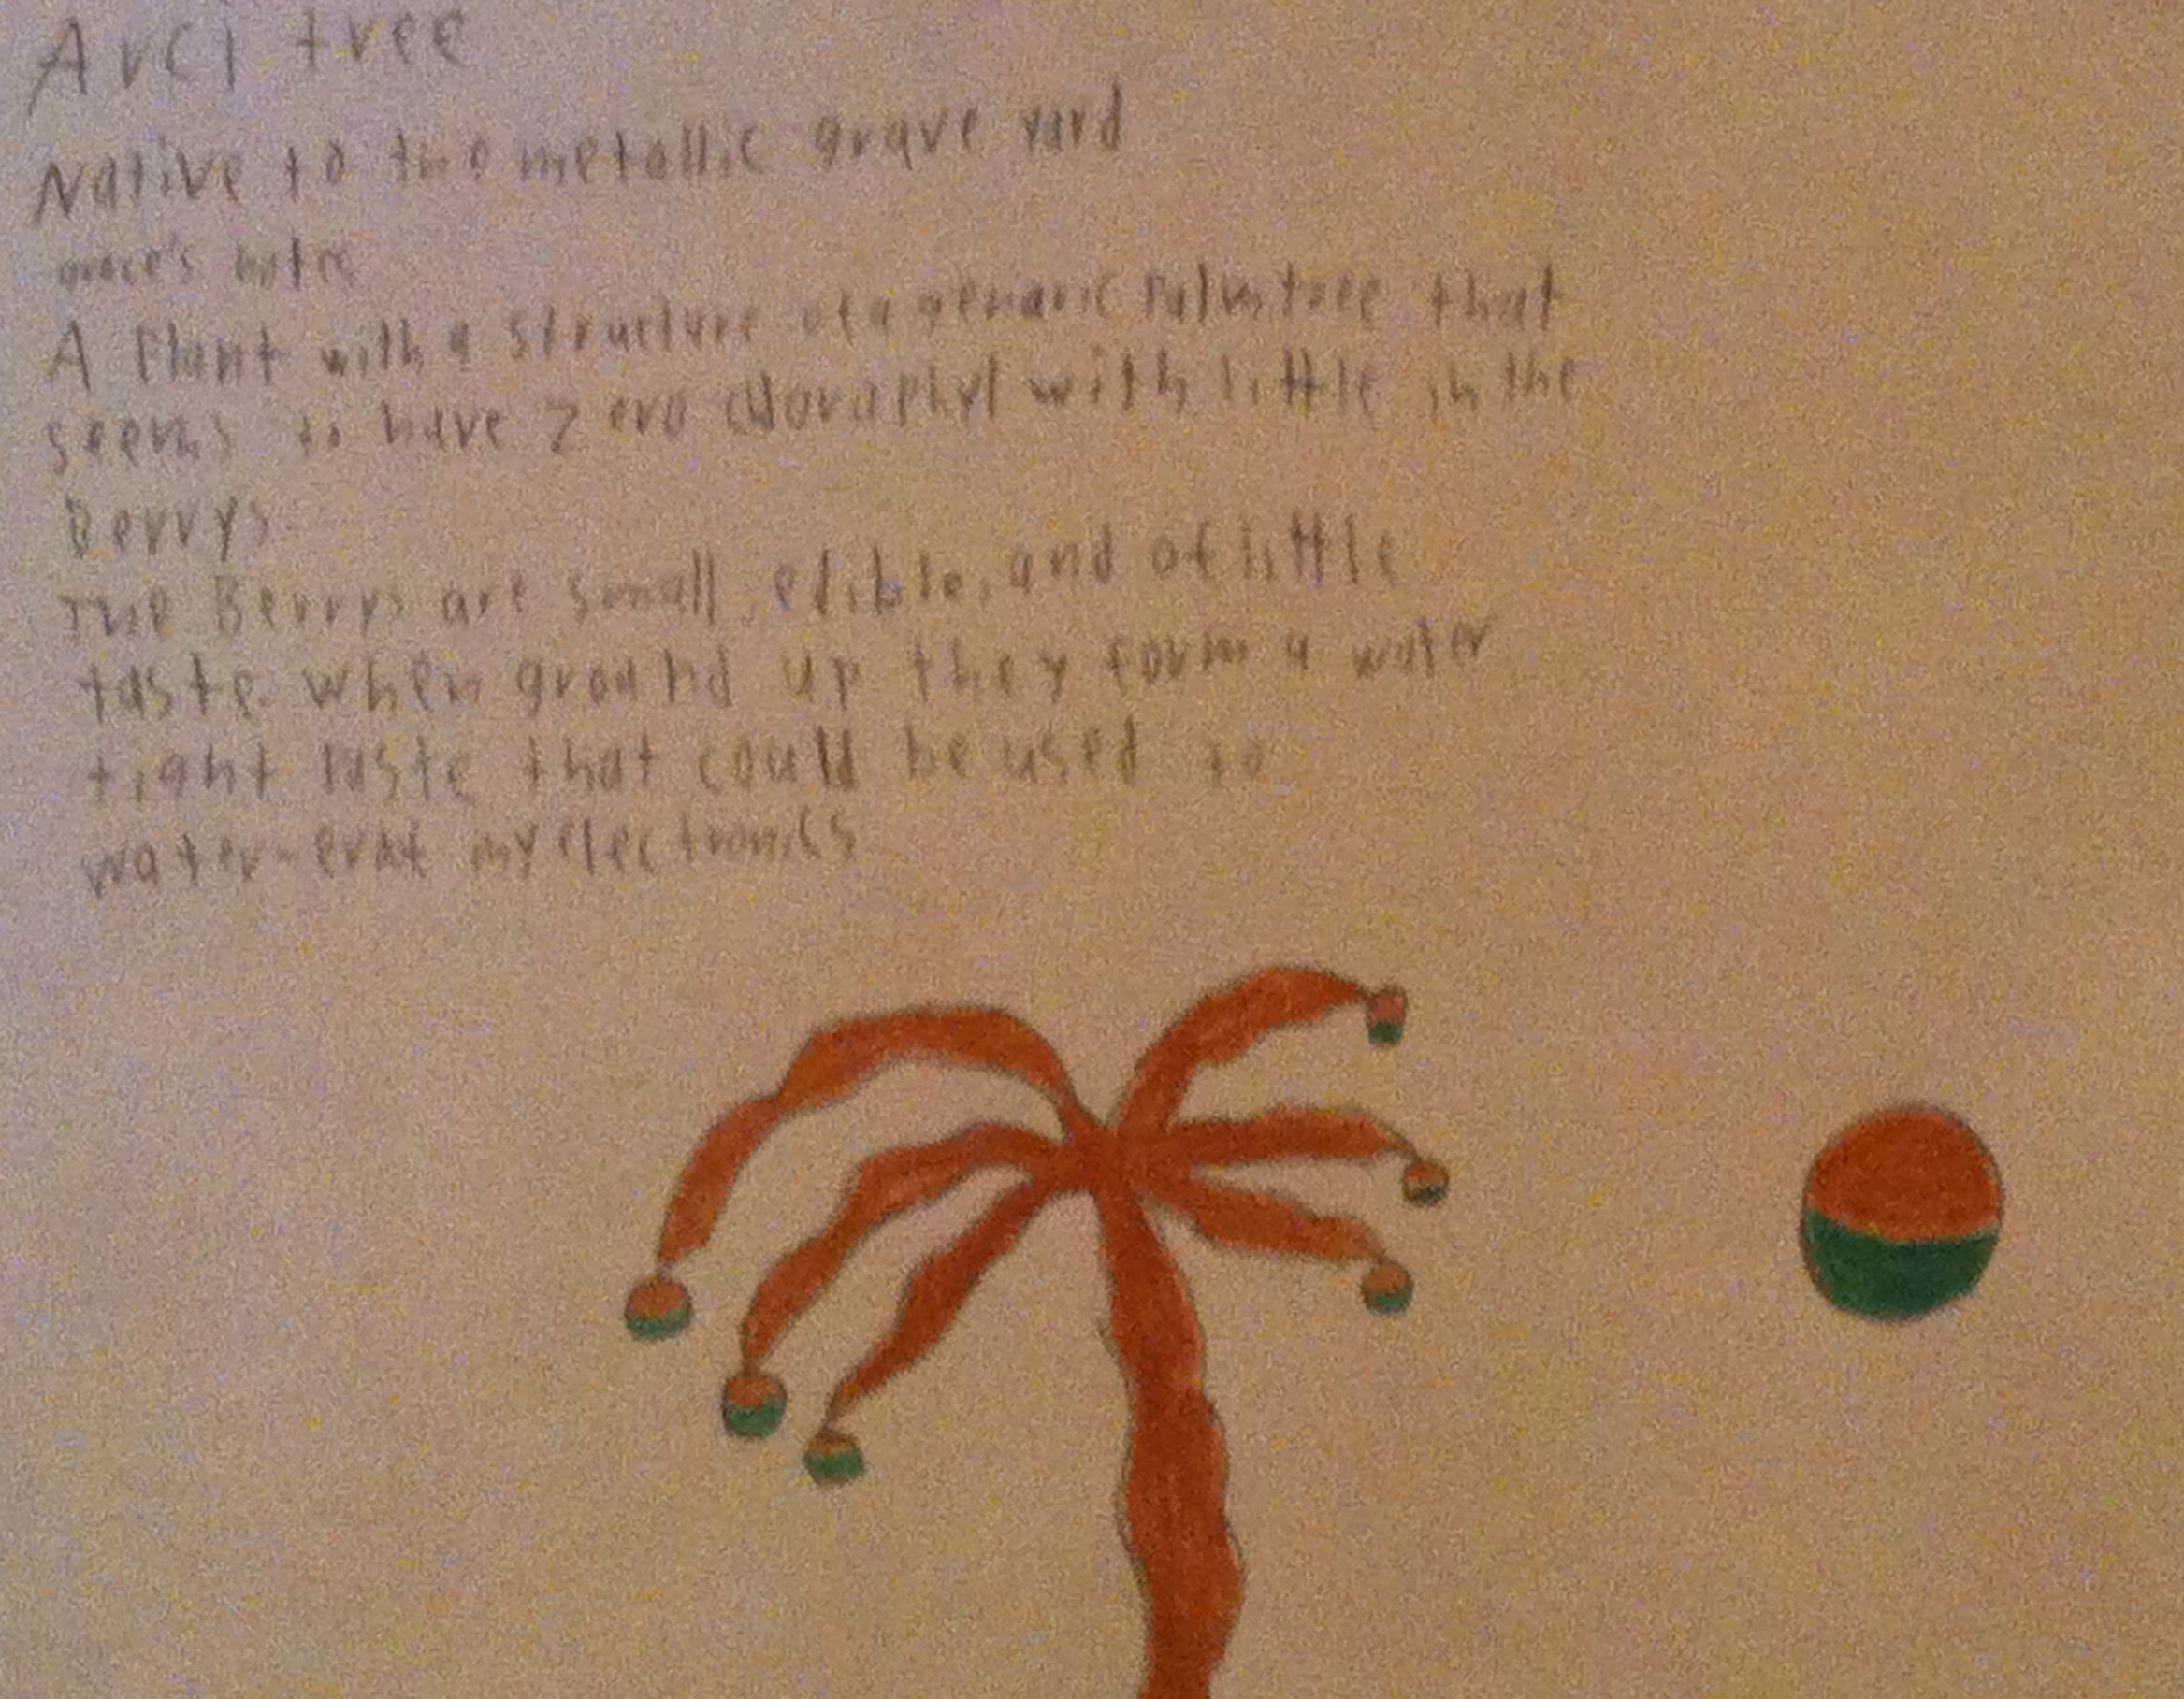 Arci tree
Native to the metallic grave yard
notes
A Plant with a structure of a generic Palm tree that
seems to have zero chloraphyl with little in the
Berrys.
The Berrys are small, edible, and of little
taste. when ground up they form a water
tight paste that could be used to
water-eract my electronics